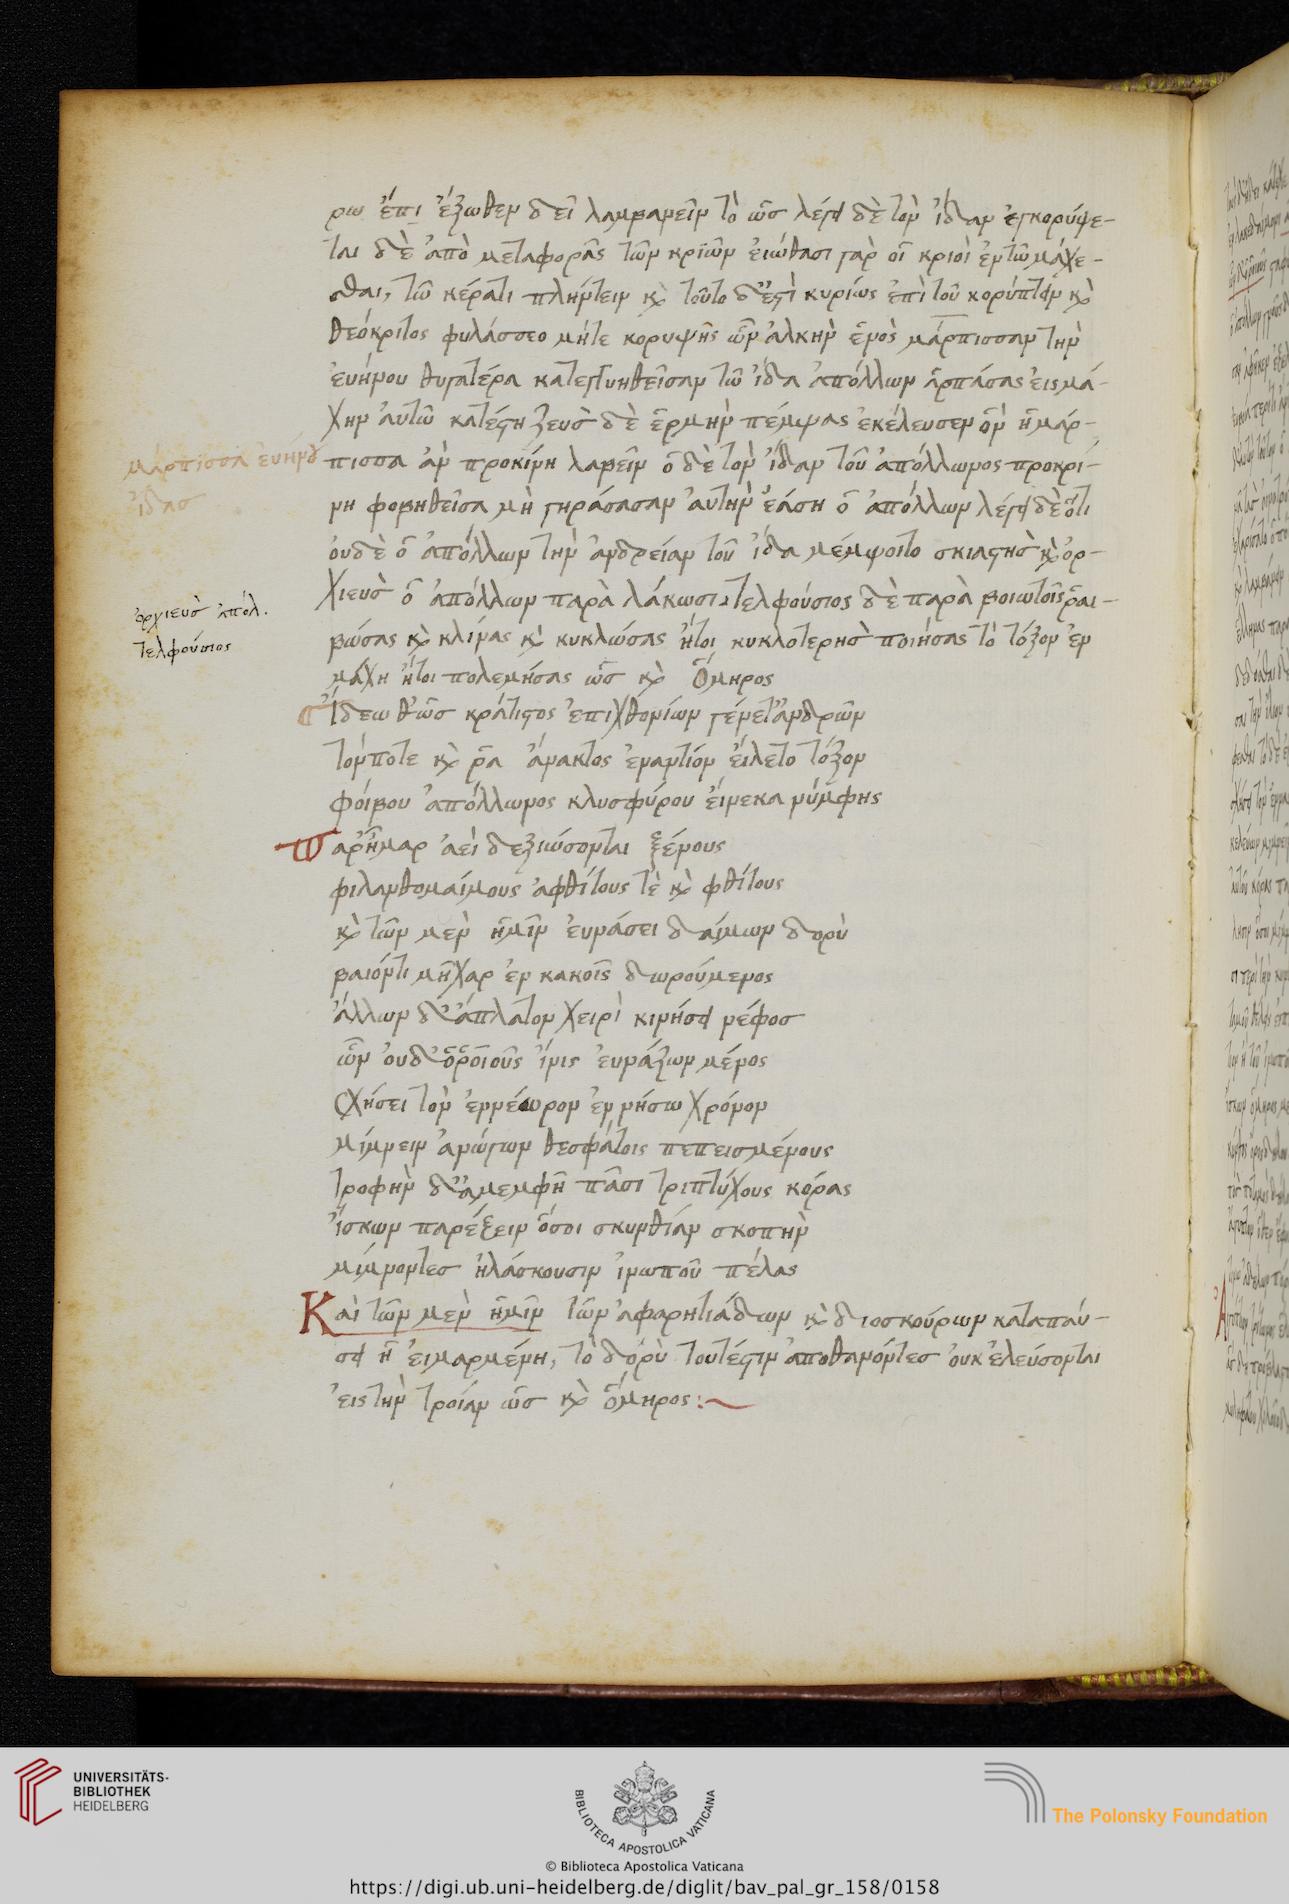 ρω ἔπι ἔξωθεν δεῖ λαμβανεῖν τὸ ὡς λέγει δὲ τὸν ἴδαν ἐγκορύψε-
ται δὲ ἀπὸ μεταφορᾶς τῶν κριῶν ἐιώθασι γαρ οἱ κριοὶ ἐν τῶ μάχε-
σθαι, τῶ κέρατι πλήττειν κὶ τοῦτο δέ ἐστὶ κυρίως ἐπὶ τοῦ κορύπτειν κὶ
θεόκριτος φυλάσσεο μήτε κορυψῆς ὧν ἀλκὴν ἑνὸς μάρπισσαν τὴν
ἐυήνου θυγατέρα κατεγγυηθεῖσαν τῶ ἴδα ἀπόλλων ἁρπάσας ἐις μά-
χην ἀυτῶ κατέστη ζευσ δὲ ἑρμὴν πέμψας ἐκέλευσεν ὃν ἡ μάρ-
πισσα ἂν προκίνη λαβεῖν ὁ δὲ τὸν ἴδαν τοῦ ἀπόλλωνος προκρί-
νη φοβηθεῖσα μὴ γηράσασαν ἀυτὴν ἐάση ὁ ἀπόλλων λέγει δὲ ὅτι
ὀυδὲ ὁ ἀπόλλων τὴν ἀνδρείαν τοῦ ἴδα μέμψοιτο σκιαστὴσ κὶ ὀρ-
χιευσ ὁ ἀπόλλων παρὰ λάκωσι, τελφούσιος δὲ παρὰ βοιωτοῖς ῥαι-
βώσας κὶ κλίνας κὶ κυκλώσας ἤτοι κυκλοτερησ ποιήσας τὸ τόξον ἐν
μάχη ἤτοι πολεμήσας ὡς κὶ Ὅμηρος
μαρπισσα ἐυήνου
ἴδασ
ὀρχιευσ ἀπόλ.
τελφούσιος
Ἴδεω θ' ὡς κράτιστος ἐπιχθονίων γένετ' ἀνδρῶν
τόν ποτε κὶ ῥα ἄνακτος ἐναντίον ἐίλετο τόξον
φοίβου ἀπόλλωνος κλυσφύρου ἐίνεκα νύμφης
Παρ' ἦμαρ ἀεὶ δεξιώσονται ξένους
φιλανθομαίμους ἀφθίτους τὲ κὶ φθίτους
κὶ τῶν μὲν ἡμῖν ἐυνάσει δαίμων δορὺ
βαιόν τι μῆχαρ ἐν κακοῖς δωρούμενος
ἄλλων δ' ἄπλατον χειρὶ κινήσει νέφοσ
ὧν ὀυδ' ὁ ῥοιοῦς ἶνις ἐυνάζων μένος
σχήσει τὸν ἐννέωρον ἐν νήσω χρόνον
μίμνειν ἀνώγων θεσφάτοις πεπεισμένους
τροφὴν δ' ἀμεμφῆ πᾶσι τριπτύχους κόρας
ἴσκων παρέξειν ὅσοι σκυνθίαν σκοπὴν
μίμνοντεσ ἠλάσκουσιν ἰνωποῦ πέλας
Καὶ τῶν μὲν ἡμῖν τῶν ἀφαρητιάδων κὶ διοσκούρων καταπαύ-
σει ἡ ἐιμαρμένη, τὸ δορὺ τουτέστιν ἀποθανόντεσ ὀυκ ἐλεύσονται
ἐις τὴν τροίαν ὡς κὶ ὅμηρος:~
UNIVERSITÄTS-
BIBLIOTHEK
HEIDELBERG
BIBLIOTECA APOSTOLICA VATICANA
The Polonsky Foundation
© Biblioteca Apostolica Vaticana
https://digi.ub.uni-heidelberg.de/diglit/bav_pal_gr_158/0158